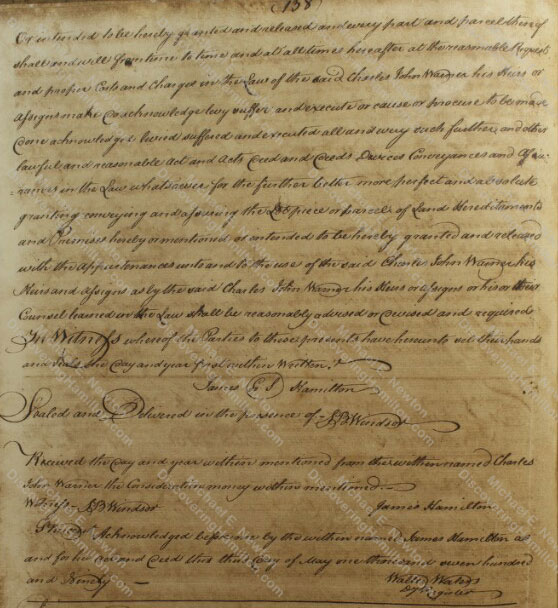 (138)
Or intended to be hereby granted and released and every part and parcel thereof
shall and will from time to time and at all times hereafter at the reasonable Request
and proper Costs and Charges in the Law of the said Charles John Warner his Heirs or
Assigns make do acknowledge levy suffer and execute or cause or procure to be made
done acknowledged levied suffered and executed all and every such further and other
lawful and reasonable Act and Acts Deed and Deeds Devices Conveyances and Assu-
-rances in the Law whatsoever for the further better more perfect and absolute
granting conveying and assuring the Lot piece or parcel of Land Hereditaments
and Premises hereby or mentioned or intended to be hereby granted and released
with the Appurtenances unto and to the use of the said Charles John Warner his
Heirs and Assigns as by the said Charles John Warner his Heirs or Assigns or his or their
Counsel learned in the Law shall be reasonably advised or devised and required
In Witness whereof the Parties to these presents have hereunto set their hands
and Seals the Day and year first within Written
James Hamilton
Sealed and Delivered in the presence of JB Windsor
Received the Day and year within mentioned from the within named Charles
John Warner the Consideration money within mentioned
Witness JB Windsor James Hamilton
Acknowledged before me by the within named James Hamilton as
and for his act and Deed this third Day of May one thousand seven hundred
and Ninety
Walter Waters
Dy Register